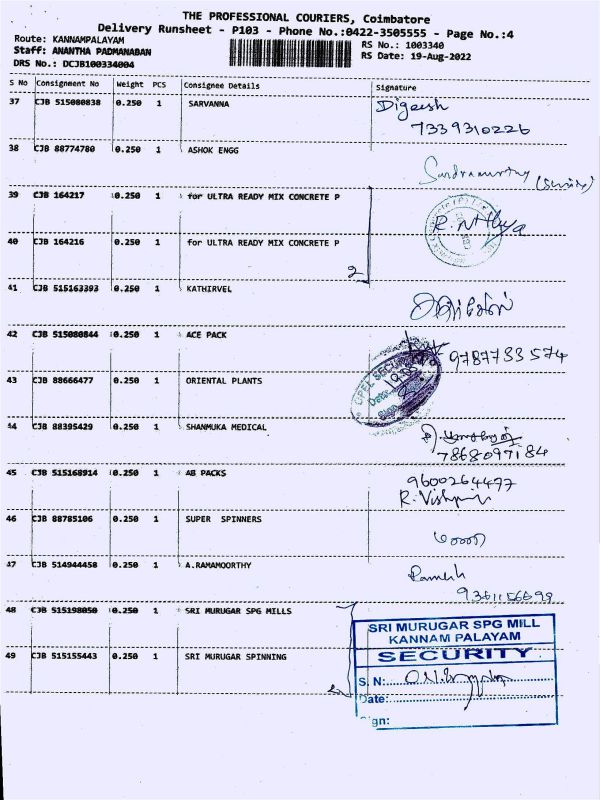 THE PROFESSIONAL COURIERS, Coimbatore
Delivery Runsheet - P103 - Phone No.:0422-3505555 - Page No.:4
Route: KANNAMPALAYAM RS No.: 1003340
Staff: ANANTHA PADMANABAN RS Date: 19-Aug-2022
DRS No.: DCJB100334004
S No Consignment No Weight PCS Consignee Details Signature
37 CJB 515080838 0.250 1 SARVANNA Digeesh
7339310226
38 CJB 88774780 0.250 1 ASHOK ENGG
39 CJB 164217 0.250 1 for ULTRA READY MIX CONCRETE P
R. Nithya
40 CJB 164216 0.250 1 for ULTRA READY MIX CONCRETE P
2
41 CJB 515163393 0.250 1 KATHIRVEL
42 CJB 515080844 0.250 1 ACE PACK
9787733574
43 CJB 88666477 0.250 1 ORIENTAL PLANTS
44 CJB 88395429 0.250 1 SHANMUKA MEDICAL
7868097184
45 CJB 515168914 0.250 1 AB PACKS 9600264497
46 CJB 88785106 0.250 1 SUPER SPINNERS
47 CJB 514944458 0.250 1 A.RAMAMOORTHY Ramesh
48 CJB 515198050 0.250 1 SRI MURUGAR SPG MILLS
SRI MURUGAR SPG MILL
KANNAM PALAYAM
49 CJB 515155443 0.250 1 SRI MURUGAR SPINNING SECURITY
S. N:
2 Date: